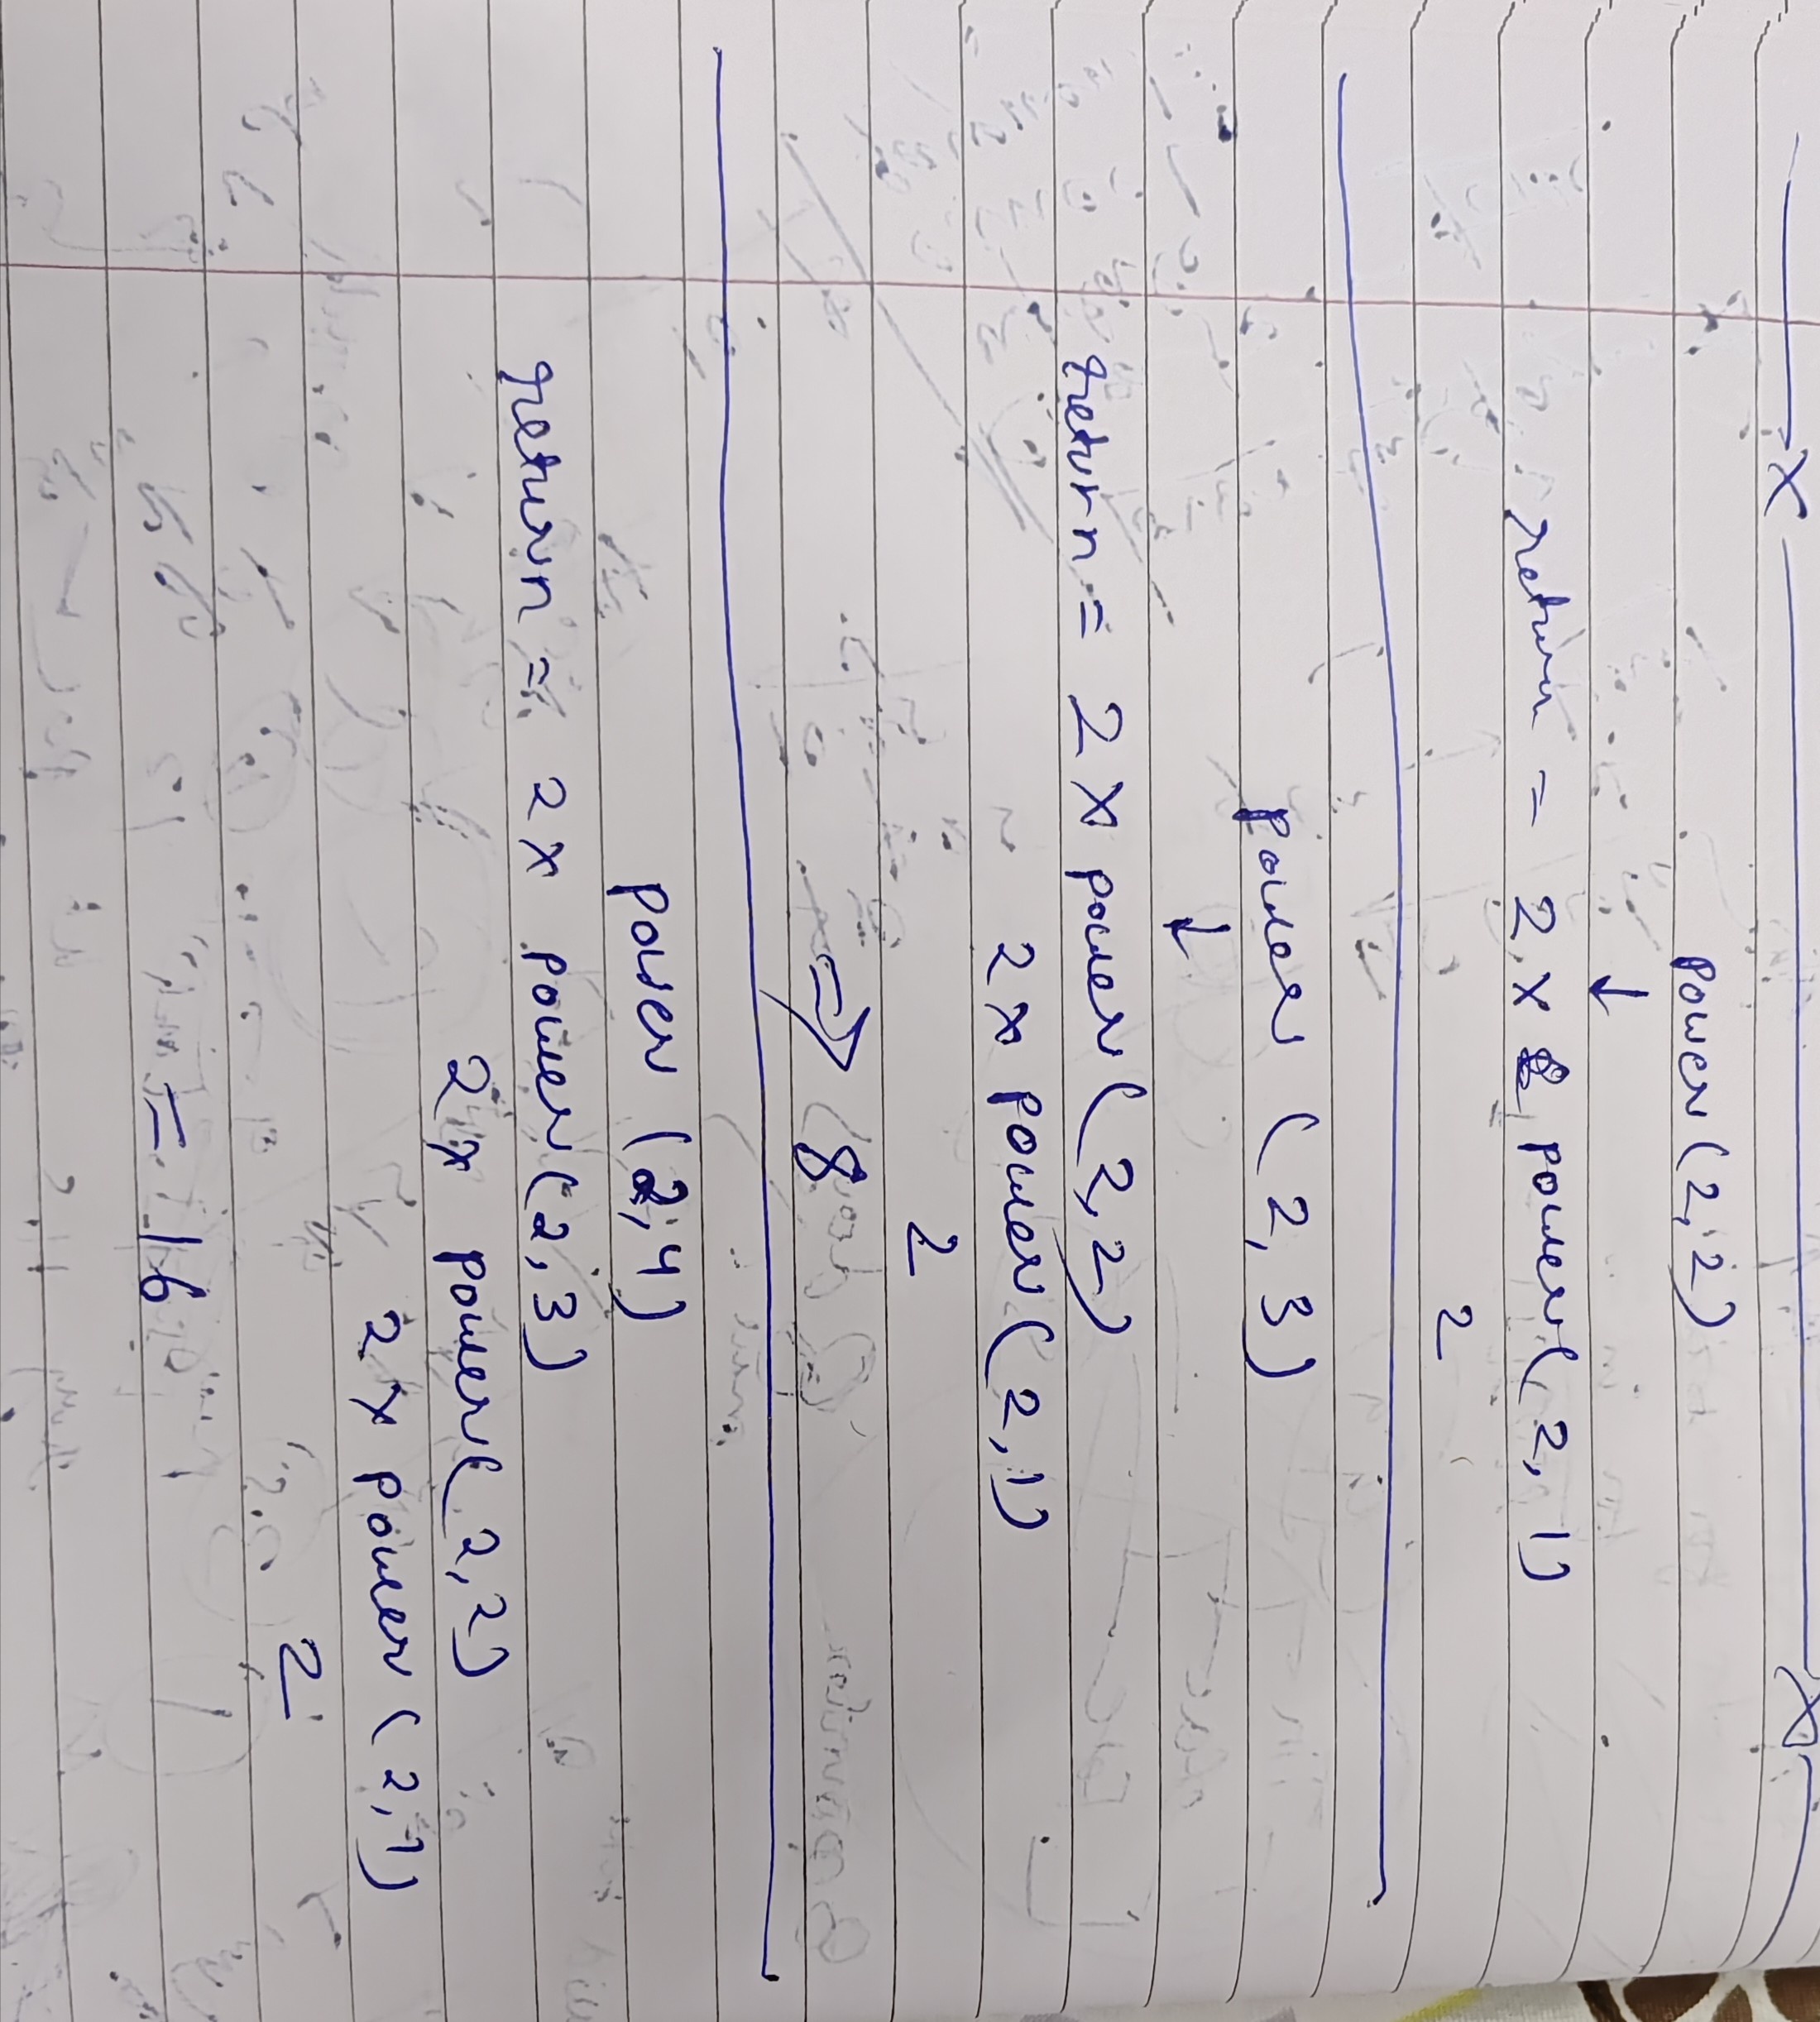 power (2, 2)
↓
return = 2 x power(2, 1)
2
power (2, 3)
↓
return = 2 x power (2, 2)
2 x power (2, 1)
2
=> 8
power (2, 4)
return = 2 x power (2, 3)
2 x power (2, 2)
2 x power (2, 1)
2
= 16